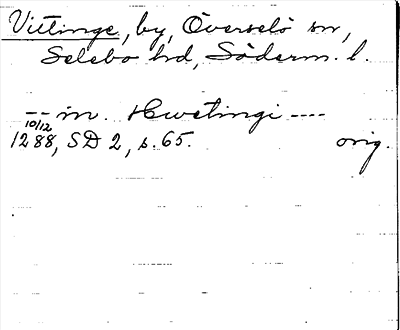 Vittinge, by, Överselö sn,
Selebo hd, Söderm. l.
-- in. Hwetingi ----
10/12
1288, SD 2, s. 65. orig.